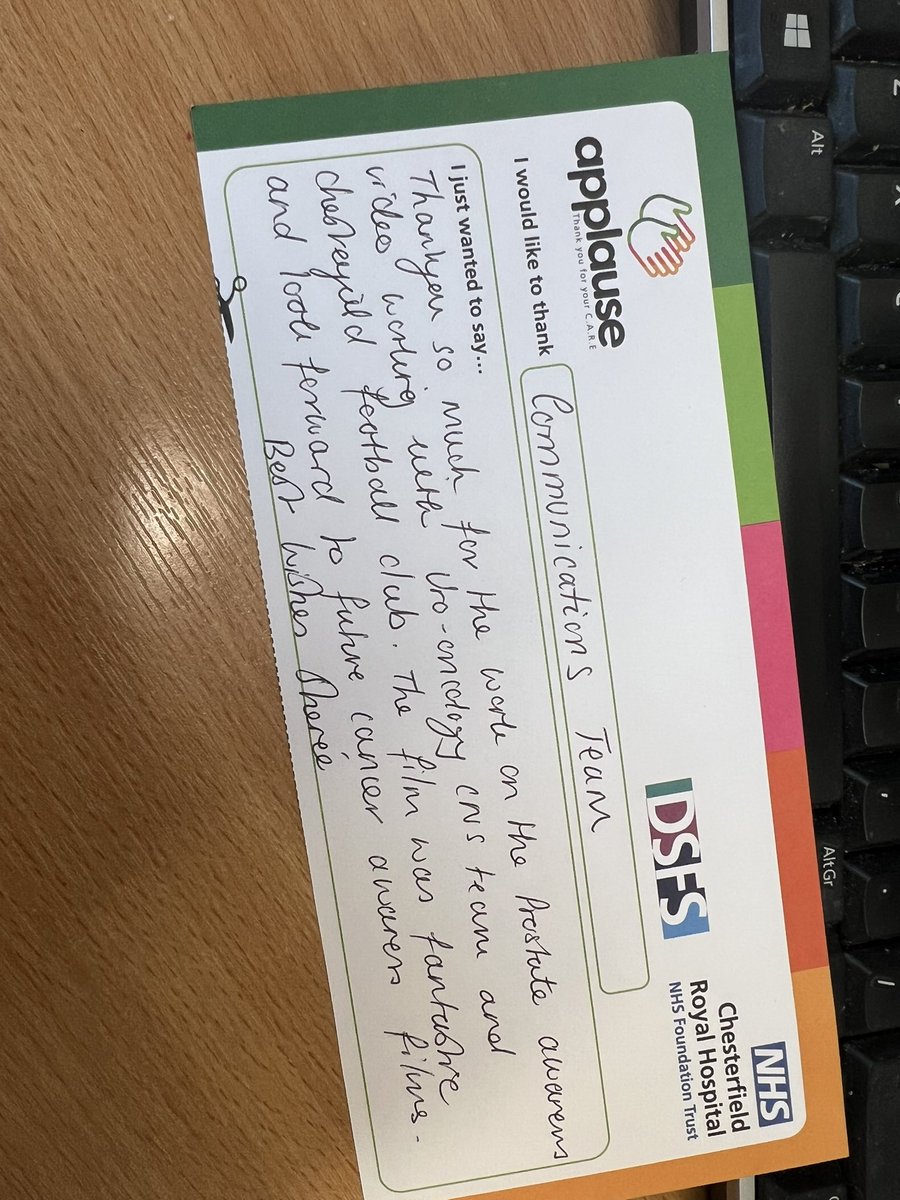 applause
Thank you for your C.A.R.E
DSFS
NHS
Chesterfield
Royal Hospital
NHS Foundation Trust
I would like to thank
Communications Team
I just wanted to say...
Thankyou so much for the work on the Prostate awarens
video working with Uro-oncology CNS team and
chesterfield football club. The film was fantastic
and look forward to future cancer awarens films.
Best wishes Sheree
Alt
AltGr